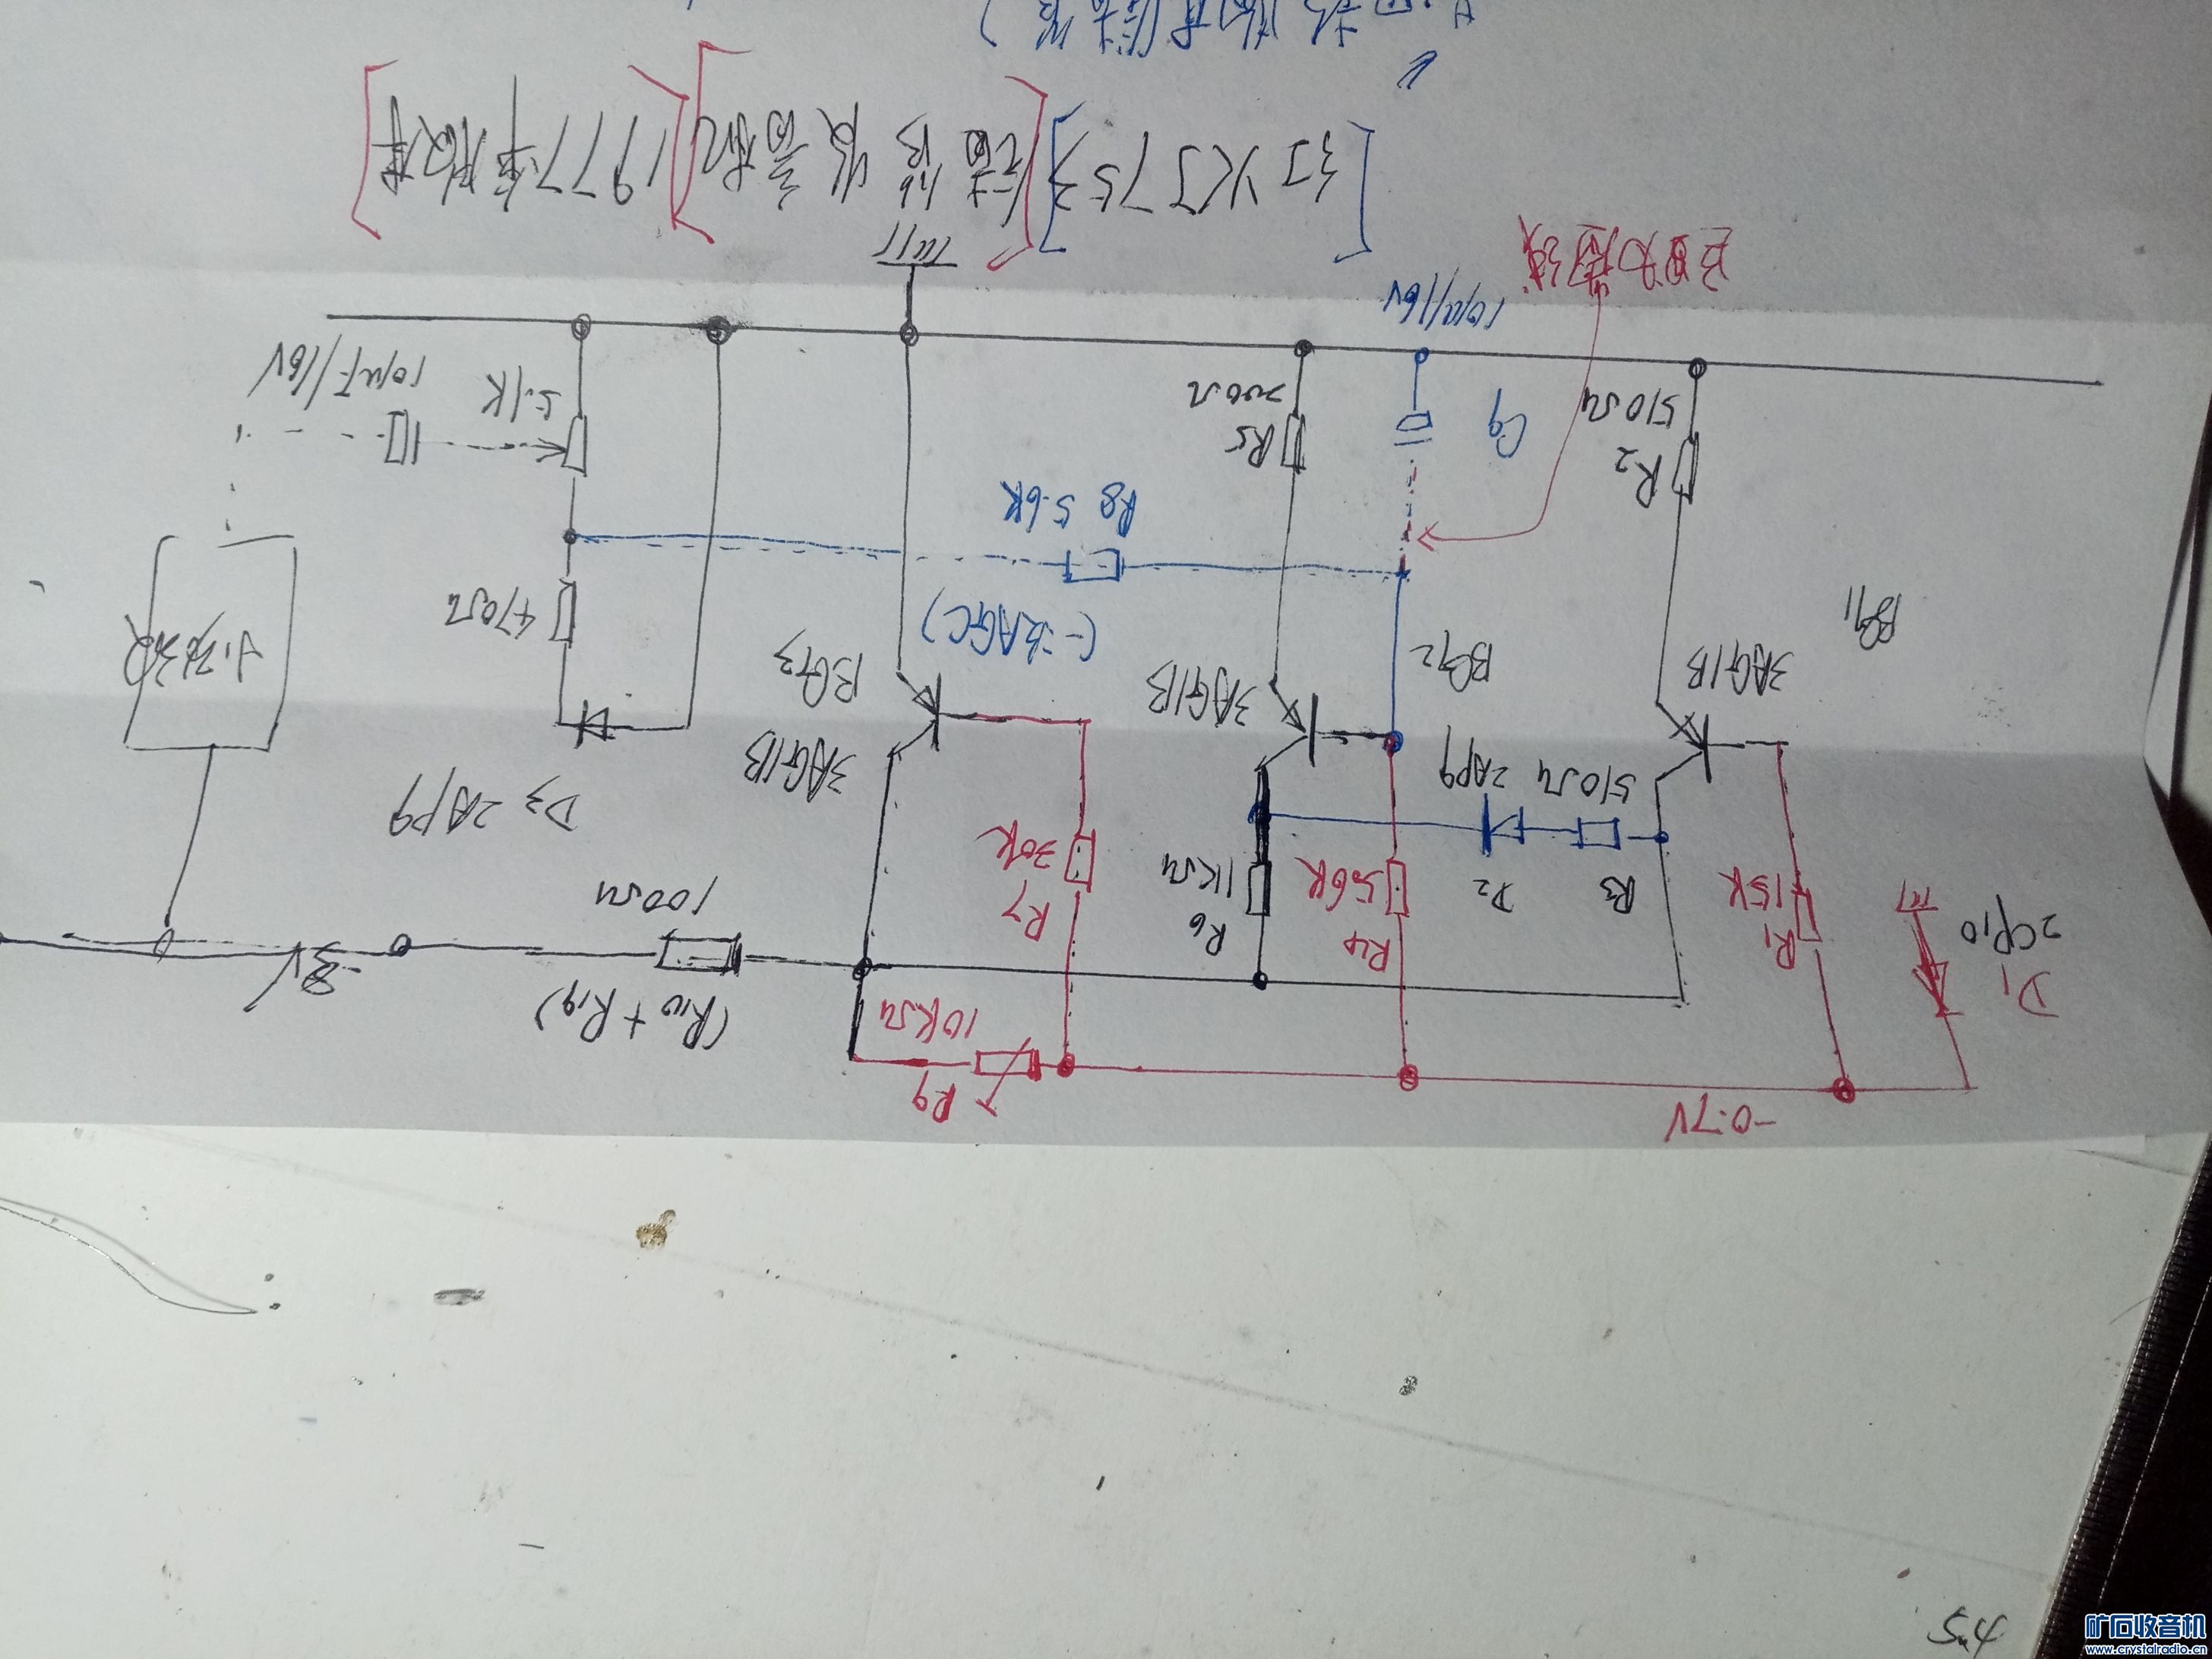 -0.7V
D1
2CP10
R1
15K
R4
5.6K
R7
30K
R9
10KΩ
(R10 + R19)
100Ω
-3V
R3
510Ω
D2
2AP9
R6
1KΩ
3AG1B
BG1
3AG1B
BG2
3AG1B
BG3
D3 2AP9
470Ω
(一次AGC)
R8 5.6K
R2
510Ω
C9
10μ/16V
R5
200Ω
5.1K
10μF/16V
[红灯753][袖珍收音机][1977年
5.4
矿石收音机
www.crystalradio.cn